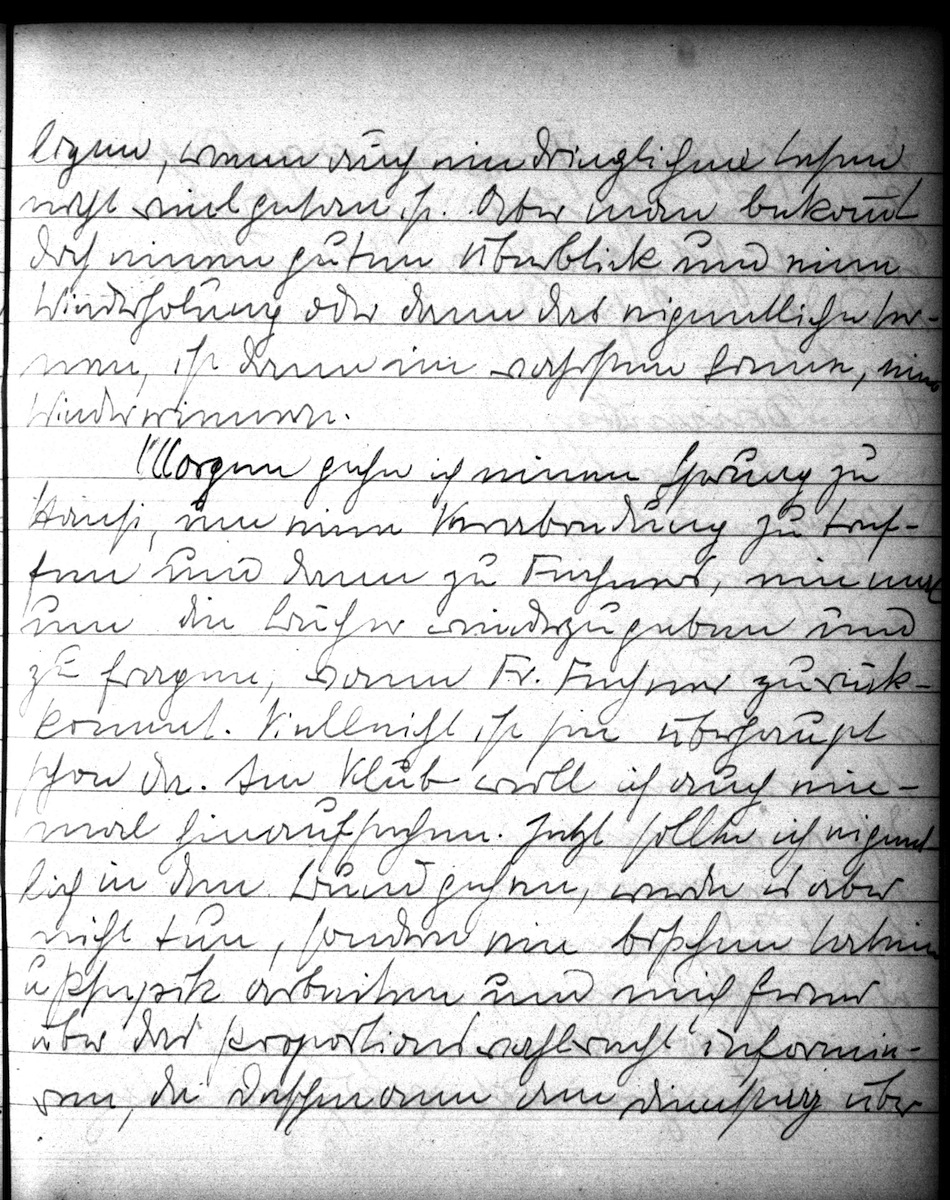 liegen, wenn auch ein dringliches Lesen
nicht viel getan ist. Aber man bekommt
doch einen guten Überblick und eine
Wiederholung oder dann das eigentliche Ler-
nen, ist dann im wahrsten Sinne, ein
Wiedererinnern.
Morgen gehe ich einen Sprung zu
Hansi, um eine Verabredung zu tref-
fen und dann zu Fuchsens, einmal
um die Bücher wiederzugeben und
zu fragen, wann Fr. Fuchs zurück-
kommt. Vielleicht ist sie überhaupt
schon da. Am Klub will ich auch ein-
mal hinaufsehen. Jetzt sollte ich eigent-
lich in den Bund gehen, werde es aber
nicht tun, sondern ein bischen Latein
u Physik arbeiten und mich ferner
über das Proportionalwahlrecht informie-
ren, da am Dienstag über